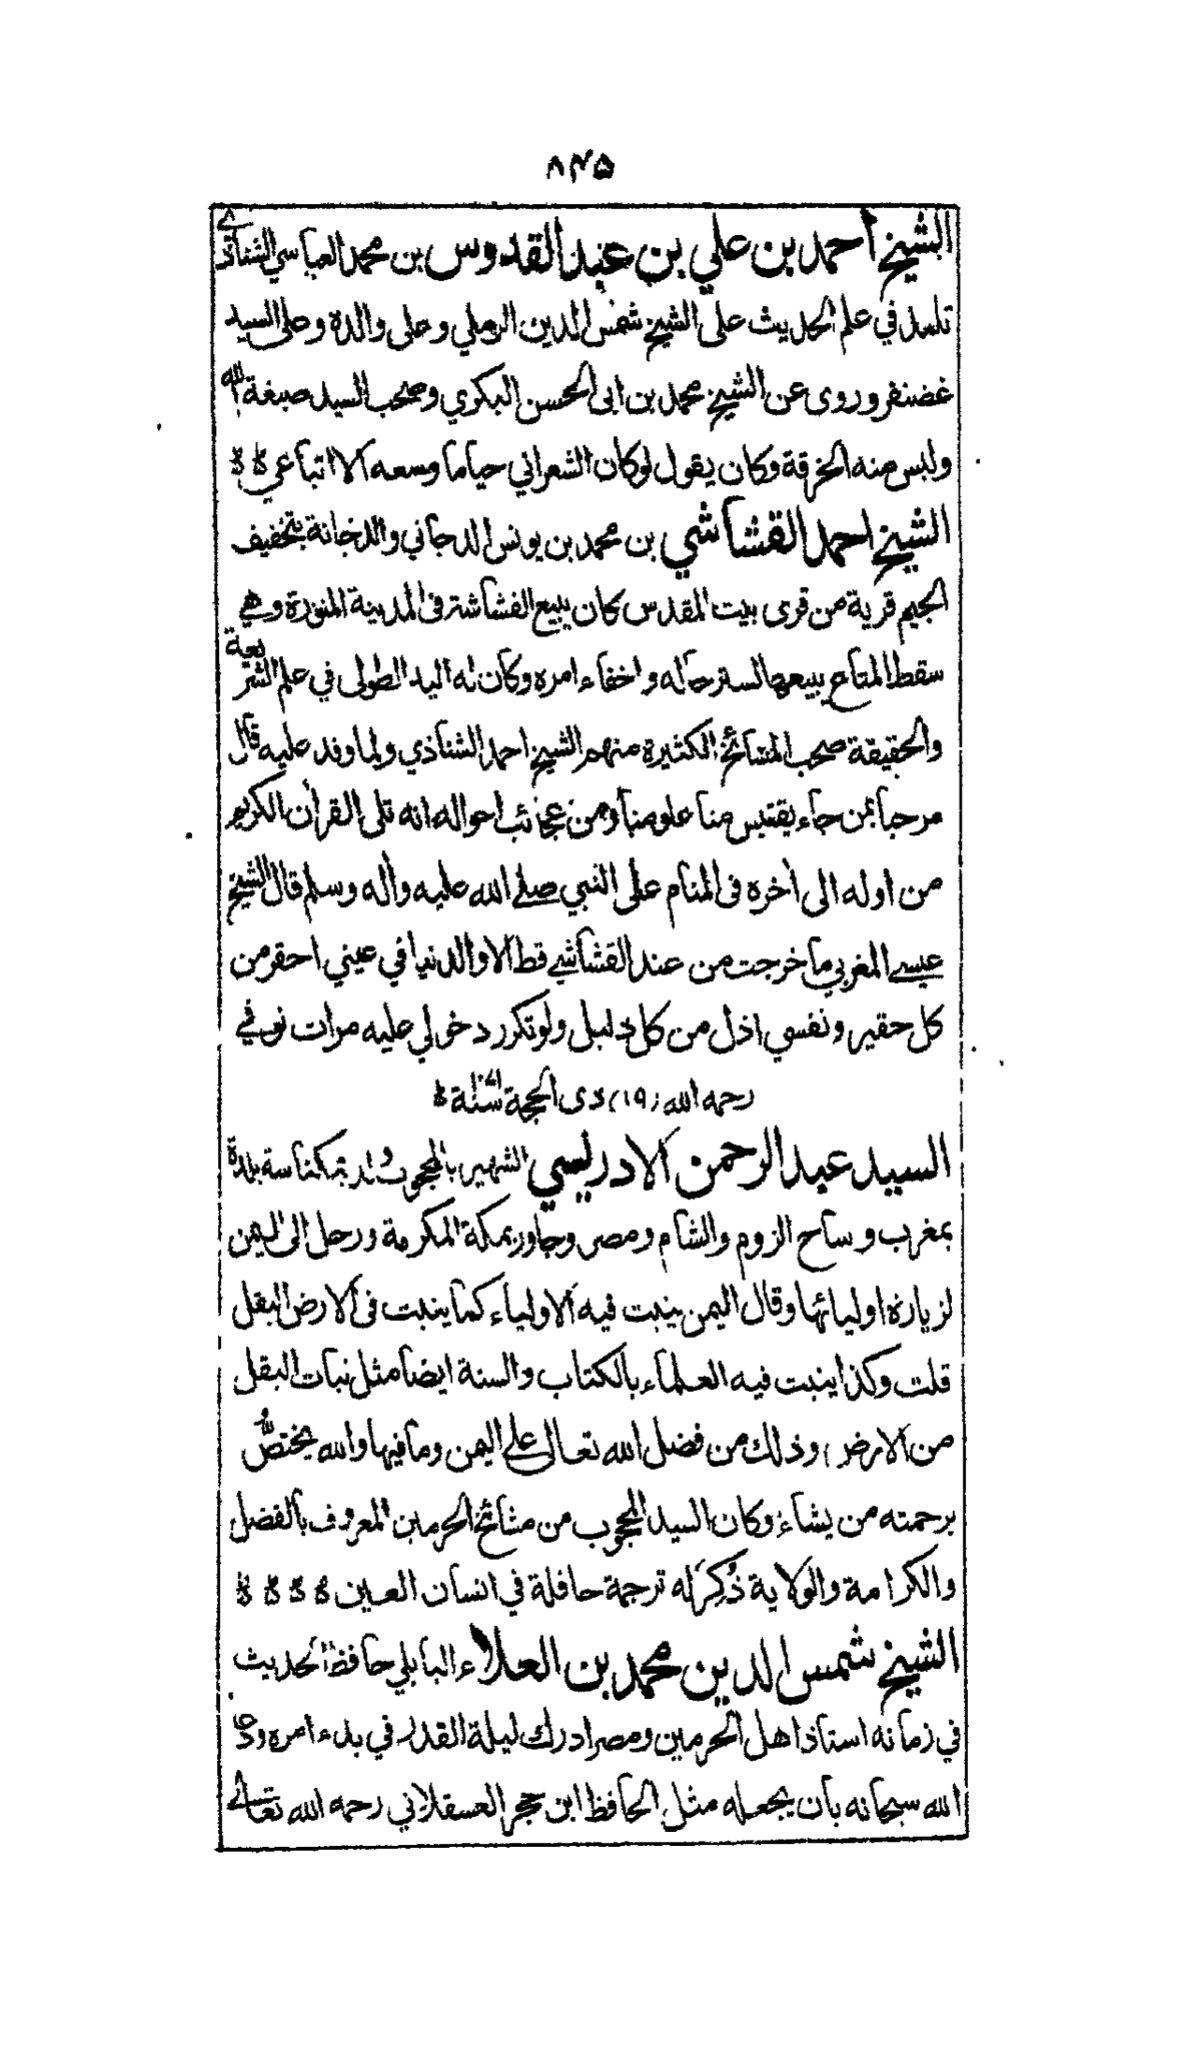 ٨٤٥
الشيخ أحمد بن علي بن عبد القدوس بن محمد العباسي الشناوي
تلمذ في علم الحديث على الشيخ شمس الدين الرملي وعلى والده وعلى السيد
غضنفر وروى عن الشيخ محمد بن ابى الحسن البكري وصحب السيد صبغة الله
ولبس منه الخرقة وكان يقول لوكان الشعراني حيا ما وسعه الا اتباعي
الشيخ احمد القشاشي بن محمد بن يونس الدجاني والدجانة بتخفيف
الجيم قرية من قرى بيت المقدس كان يبيع القشاشة فى المدينة المنورة وهي
سقط المتاع يبيعها لستر حاله واخفاء امره وكان له اليد الطولى في علم الشريعة
والحقيقة صحب المشائخ الكثيرة منهم الشيخ احمد الشناذي ولما وفد عليه قال
مرحبا بمن جاء يقتبس منا علومنا ومن عجائب احواله انه تلى القرأن الكريم
من اوله الى أخره فى المنام على النبي صلے الله عليه وأله وسلم قال الشيخ
عيسے المغربي ما خرجت من عند القشاشے قط الا والدنيا في عيني احقر من
كل حقير ونفسي اذل من كل ذليل ولو تكرر دخولي عليه مرات توفي
رحمه الله (١٩) ذى الحجة سنة
السيد عبد الرحمن الادريسي الشهير بالمحجوب ولد بمكناسة بلدة
بمغرب وساح الروم والشام ومصر وجاور بمكة المكرمة ورحل الى اليمن
لزيارة اوليائها وقال اليمن ينبت فيه الاولياء كما ينبت فى الارض البقل
قلت وكذا ينبت فيه العلماء بالكتاب والسنة ايضا مثل نبات البقل
من الارض وذلك من فضل الله تعالى علے اليمن وما فيها والله يختص
برحمته من يشاء وكان السيد المحجوب من مشائخ الحرمين المعروف بالفضل
والكرامة والولاية ذُكِرَ له ترجمة حافلة في انسان العين
الشيخ شمس الدين محمد بن العلاء البابلي حافظ الحديث
في زمانه استاذ اهل الحرمين ومصر ادرك ليلة القدر في بدء امره ودعا
الله سبحانه بان يجعله مثل الحافظ ابن حجر العسقلاني رحمه الله تعالے